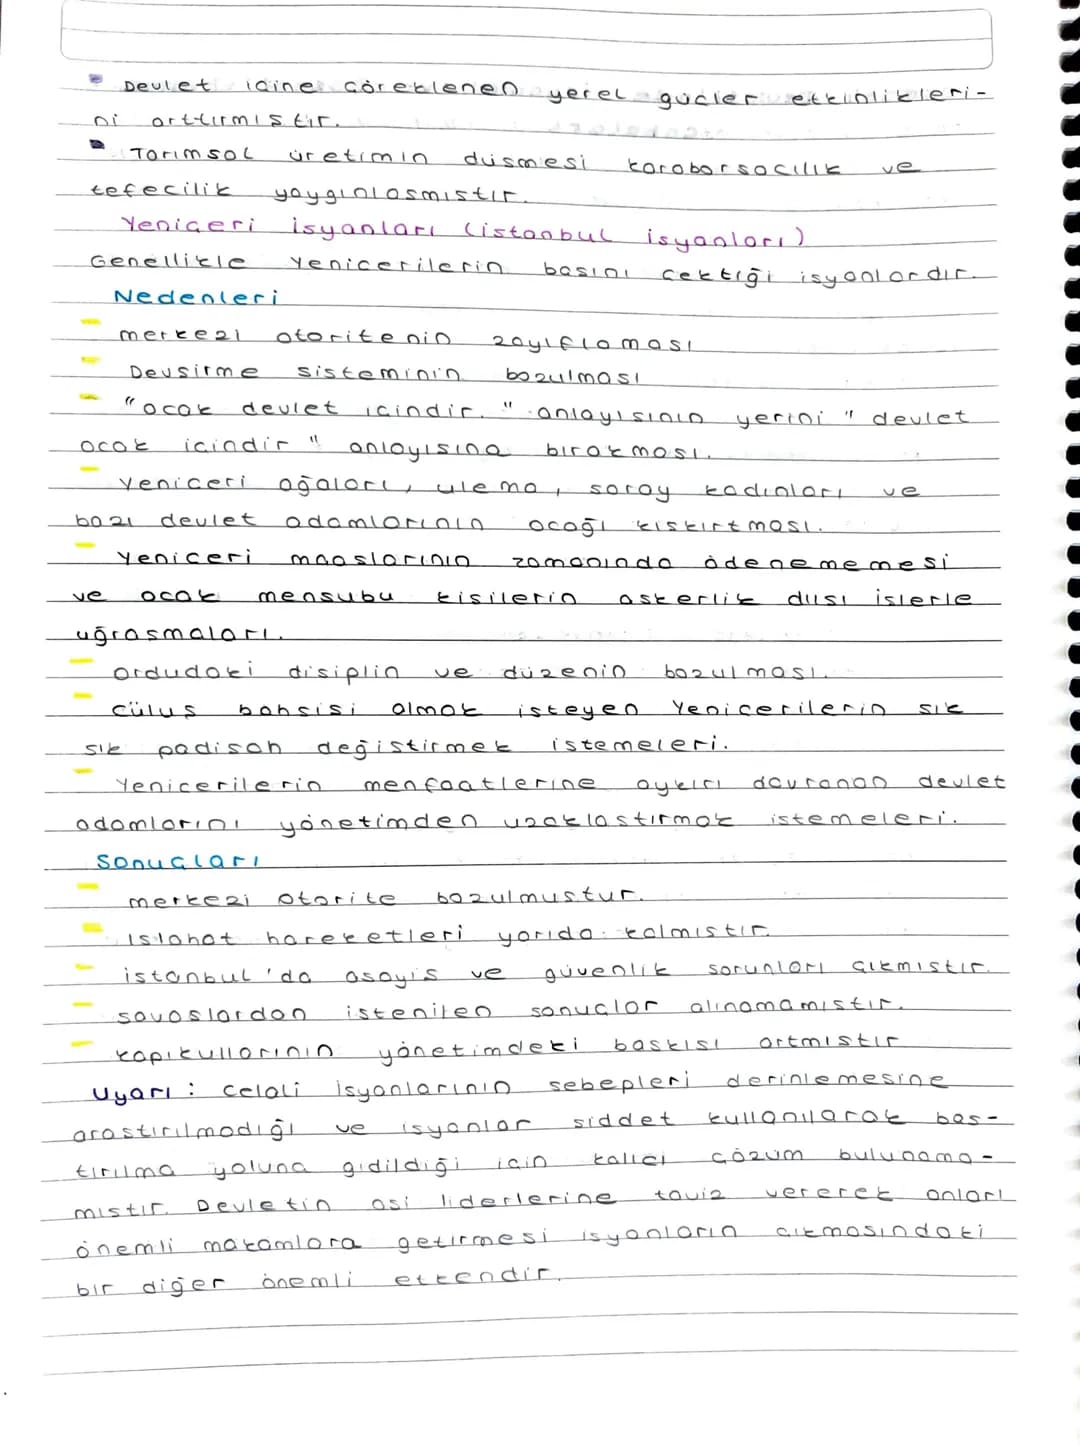 Devlet içine çöreklenen yerel güçler etkinlikleri-
ni arttırmıştır.
Tarımsal üretimin düşmesi karaborsacılık ve
tefecilik yaygınlaşmıştır.
Yeniçeri isyanları (istanbul isyanları)
Genellikle Yeniçerilerin başını çektiği isyanlardır.
Nedenleri
merkezi otoritenin zayıflaması
Devşirme sisteminin bozulması
"ocak devlet içindir." anlayışının yerini "devlet
ocak içindir" anlayışına bırakması.
Yeniçeri ağaları, ulema, saray kadınları ve
bazı devlet adamlarının ocağı kışkırtması.
Yeniçeri maaşlarının zamanında ödenememesi
ve ocak mensubu kişilerin askerlik dışı işlerle
uğraşmaları.
Ordudaki disiplin ve düzenin bozulması.
Cülus bahşişi almak isteyen Yeniçerilerin sık
sık padişah değiştirmek istemeleri.
Yeniçerilerin menfaatlerine aykırı davranan devlet
adamlarını yönetimden uzaklaştırmak istemeleri.
Sonuçları
merkezi otorite bozulmuştur.
Islahat hareketleri yarıda kalmıştır.
istanbul'da asayiş ve güvenlik sorunları çıkmıştır.
savaşlardan istenilen sonuçlar alınamamıştır.
kapıkullarının yönetimdeki baskısı artmıştır
Uyarı: Celali isyanlarının sebepleri derinlemesine
araştırılmadığı ve isyanlar şiddet kullanılarak bas-
tırılma yoluna gidildiği için kalıcı çözüm bulunama-
mıştır. Devletin asi liderlerine taviz vererek onları
önemli makamlara getirmesi isyanların çıkmasındaki
bir diğer önemli etkendir.